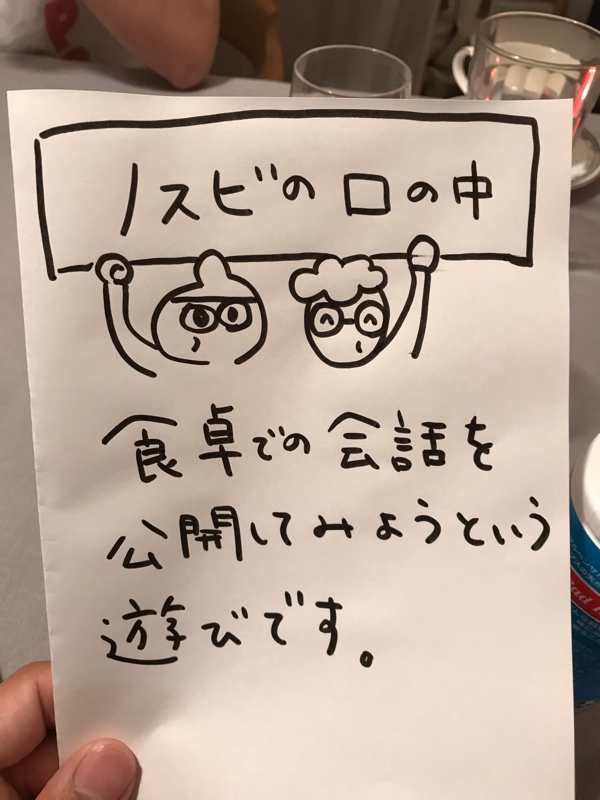 ノスビの口の中
食卓での会話を
公開してみようという
遊びです。